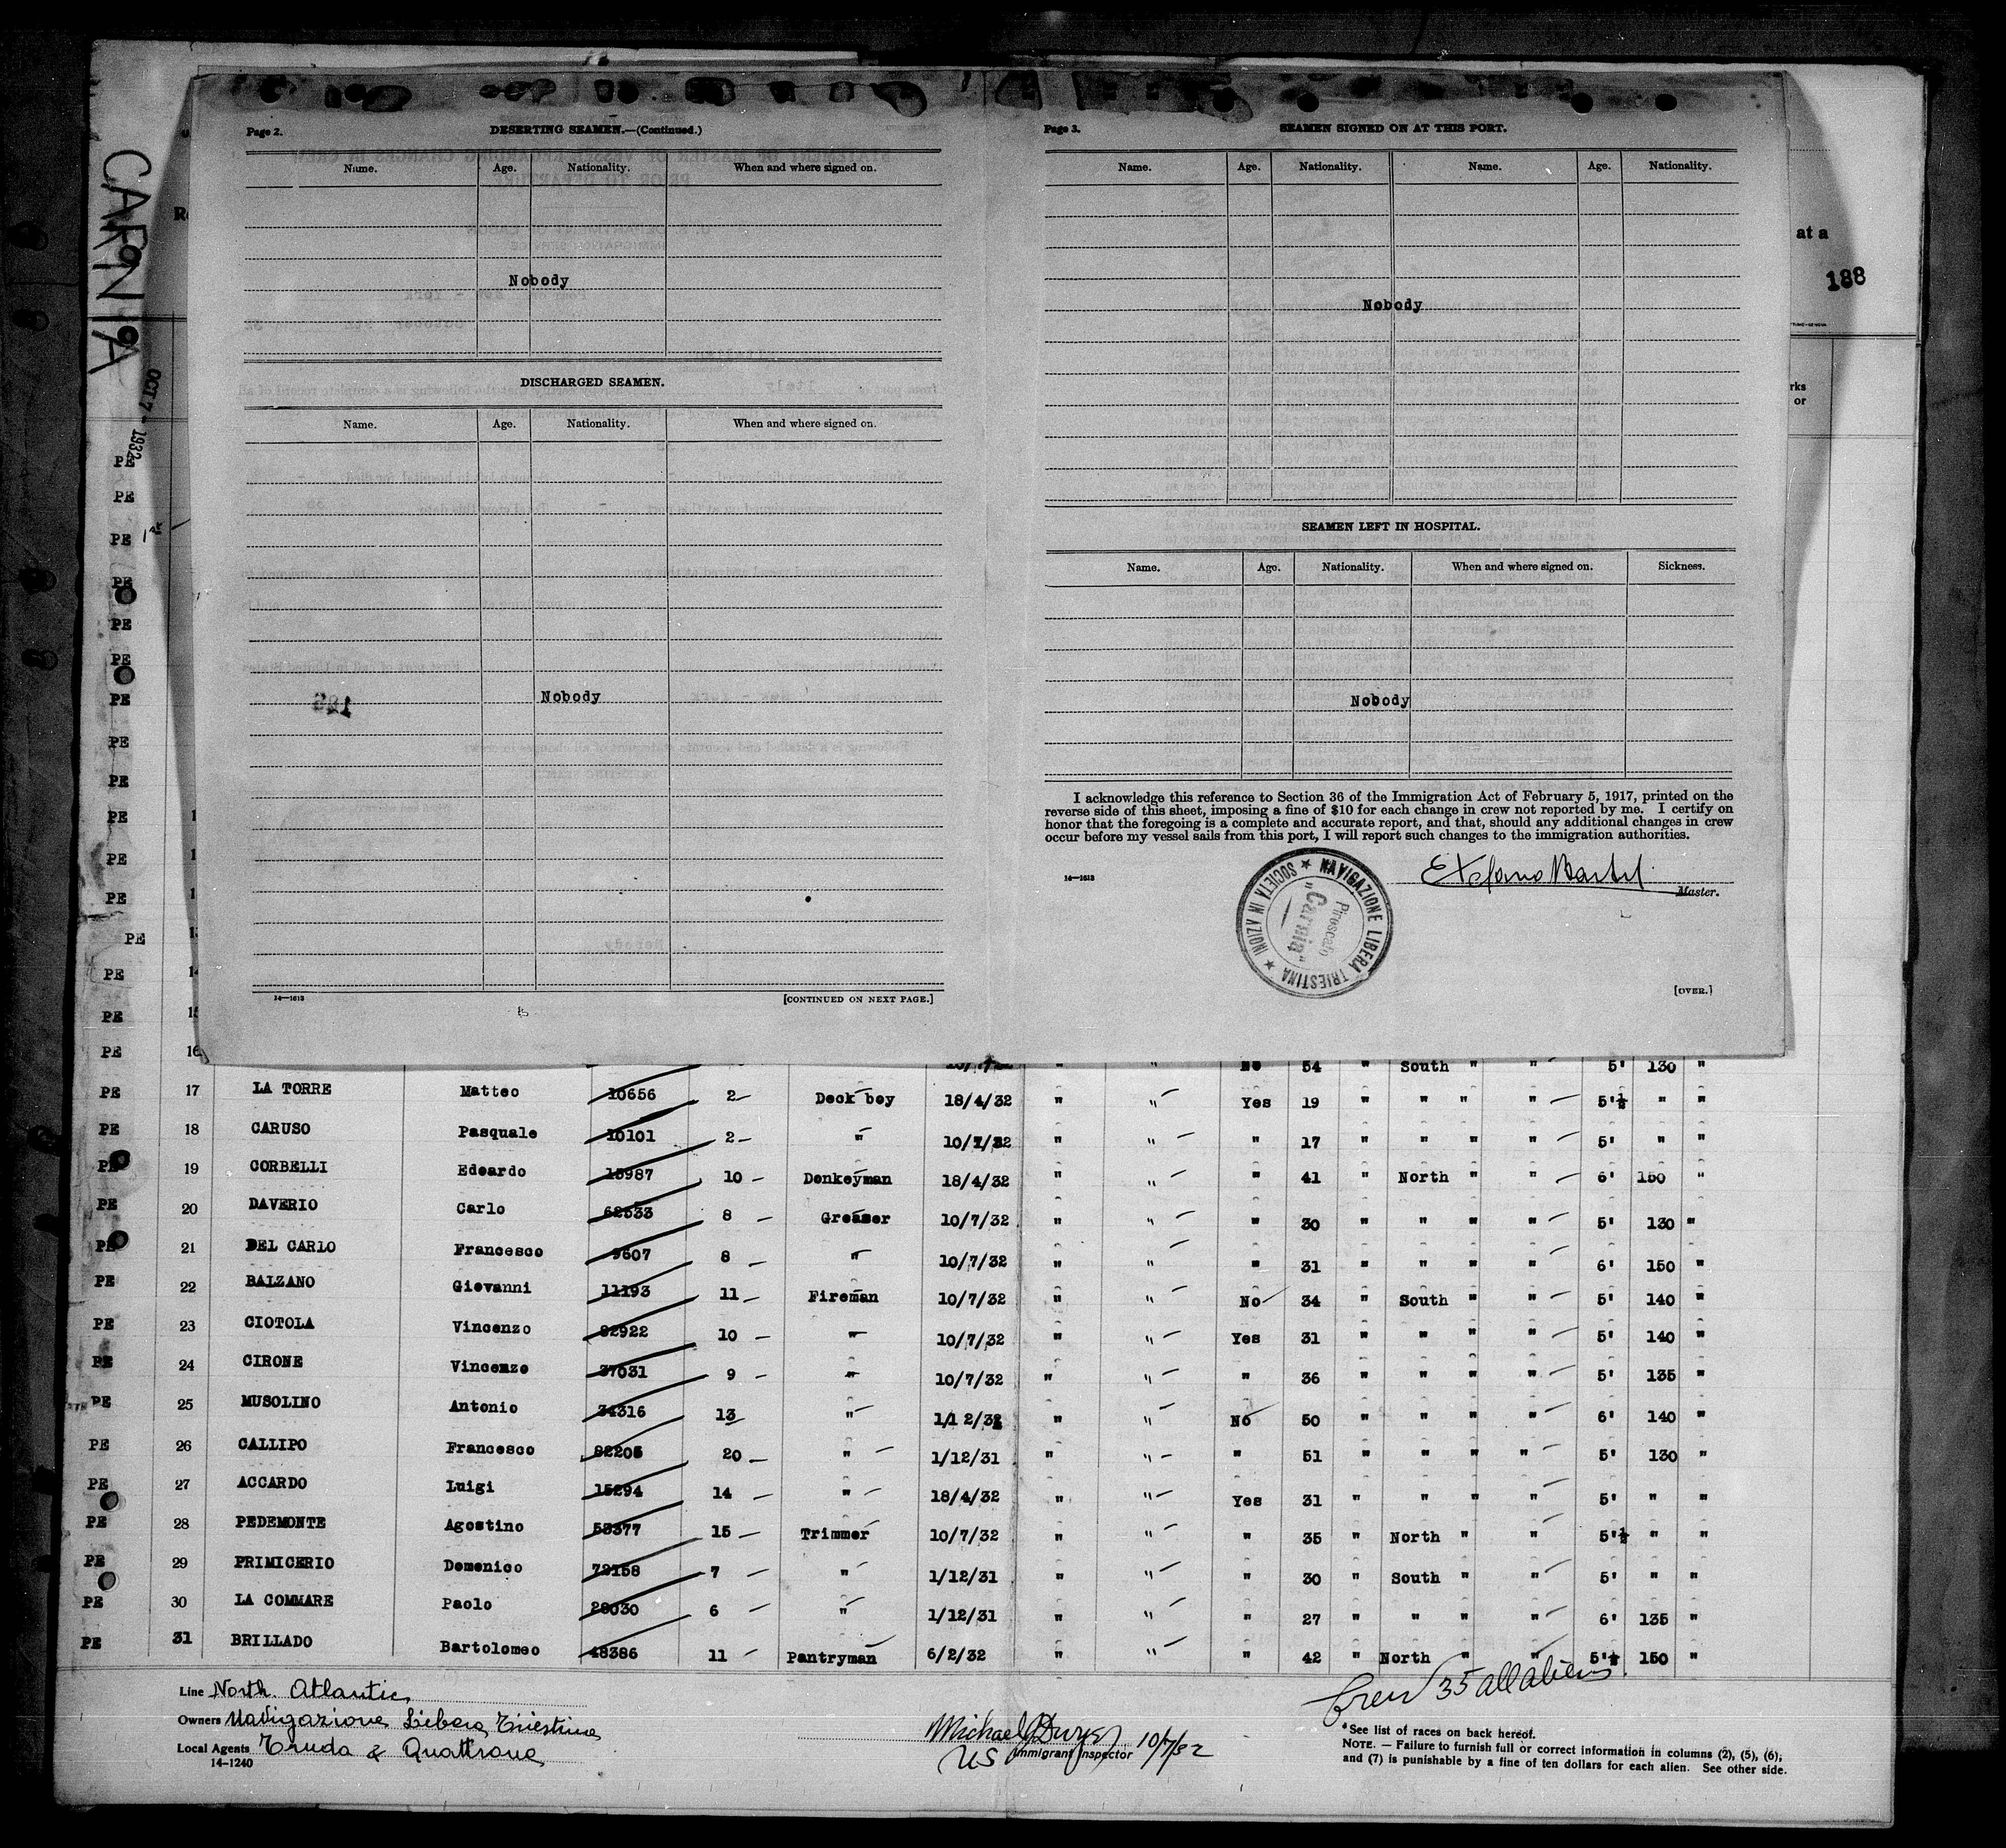 CARNIA
OCT 7 - 1932
188
at a
rks
or
Page 2.
DESERTING SEAMEN.—(Continued.)
Name. Age. Nationality. When and where signed on.
Nobody
DISCHARGED SEAMEN.
Name. Age. Nationality. When and where signed on.
Nobody
14—1613
[CONTINUED ON NEXT PAGE.]
Page 3.
SEAMEN SIGNED ON AT THIS PORT.
Name. Age. Nationality. Name. Age. Nationality.
Nobody
SEAMEN LEFT IN HOSPITAL.
Name. Age. Nationality. When and where signed on. Sickness.
Nobody
I acknowledge this reference to Section 36 of the Immigration Act of February 5, 1917, printed on the
reverse side of this sheet, imposing a fine of $10 for each change in crew not reported by me. I certify on
honor that the foregoing is a complete and accurate report, and that, should any additional changes in crew
occur before my vessel sails from this port, I will report such changes to the immigration authorities.
Master.
14—1613
NAVIGAZIONE LIBERA TRIESTINA ★ SOCIETÀ IN AZIONI ★
Piroscafo
"Carnia"
[OVER.]
PE
PE
PE 1st
PE
PE
PE
PE
PE
PE
PE 1
PE 1
PE 1
PE 13
PE 14
PE 15
PE 16 " " No 54 " South " " 5' 130 "
PE 17 LA TORRE Matteo 10656 2 Deck boy 18/4/32 " " Yes 19 " " " " 5'½ " "
PE 18 CARUSO Pasquale 10101 2 " 10/7/32 " " " 17 " " " " 5' " "
PE 19 CORBELLI Edoardo 15987 10 Donkeyman 18/4/32 " " " 41 " North " " 6' 150 "
PE 20 DAVERIO Carlo 62533 8 Greaser 10/7/32 " " " 30 " " " " 5' 130 "
PE 21 DEL CARLO Francesco 9607 8 " 10/7/32 " " " 31 " " " " 6' 150 "
PE 22 BALZANO Giovanni 11193 11 Fireman 10/7/32 " " No 34 " South " " 5' 140 "
PE 23 CIOTOLA Vincenzo 82922 10 " 10/7/32 " " Yes 31 " " " " 5' 140 "
PE 24 CIRONE Vincenzo 37031 9 " 10/7/32 " " " 36 " " " " 5' 135 "
PE 25 MUSOLINO Antonio 34316 13 " 1/12/32 " " No 50 " " " " 6' 140 "
PE 26 CALLIPO Francesco 82205 20 " 1/12/31 " " " 51 " " " " 5' 130 "
PE 27 ACCARDO Luigi 15294 14 " 18/4/32 " " Yes 31 " " " " 5' " "
PE 28 PEDEMONTE Agostino 53377 15 Trimmer 10/7/32 " " " 35 " North " " 5'½ " "
PE 29 PRIMICERIO Domenico 72158 7 " 1/12/31 " " " 30 " South " " 5' " "
PE 30 LA COMMARE Paolo 28030 6 " 1/12/31 " " " 27 " " " " 6' 135 "
PE 31 BRILLADO Bartolomeo 48386 11 Pantryman 6/2/32 " " " 42 " North " " 5'½ 150 "
Crew 35 all aliens
Line North Atlantic
Owners Navigazione Libera Triestina
Local Agents Truda & Quattrone
14-1240
Michael Dwyer 10/7/32
US Immigrant Inspector
*See list of races on back hereof.
NOTE. — Failure to furnish full or correct information in columns (2), (5), (6),
and (7) is punishable by a fine of ten dollars for each alien. See other side.